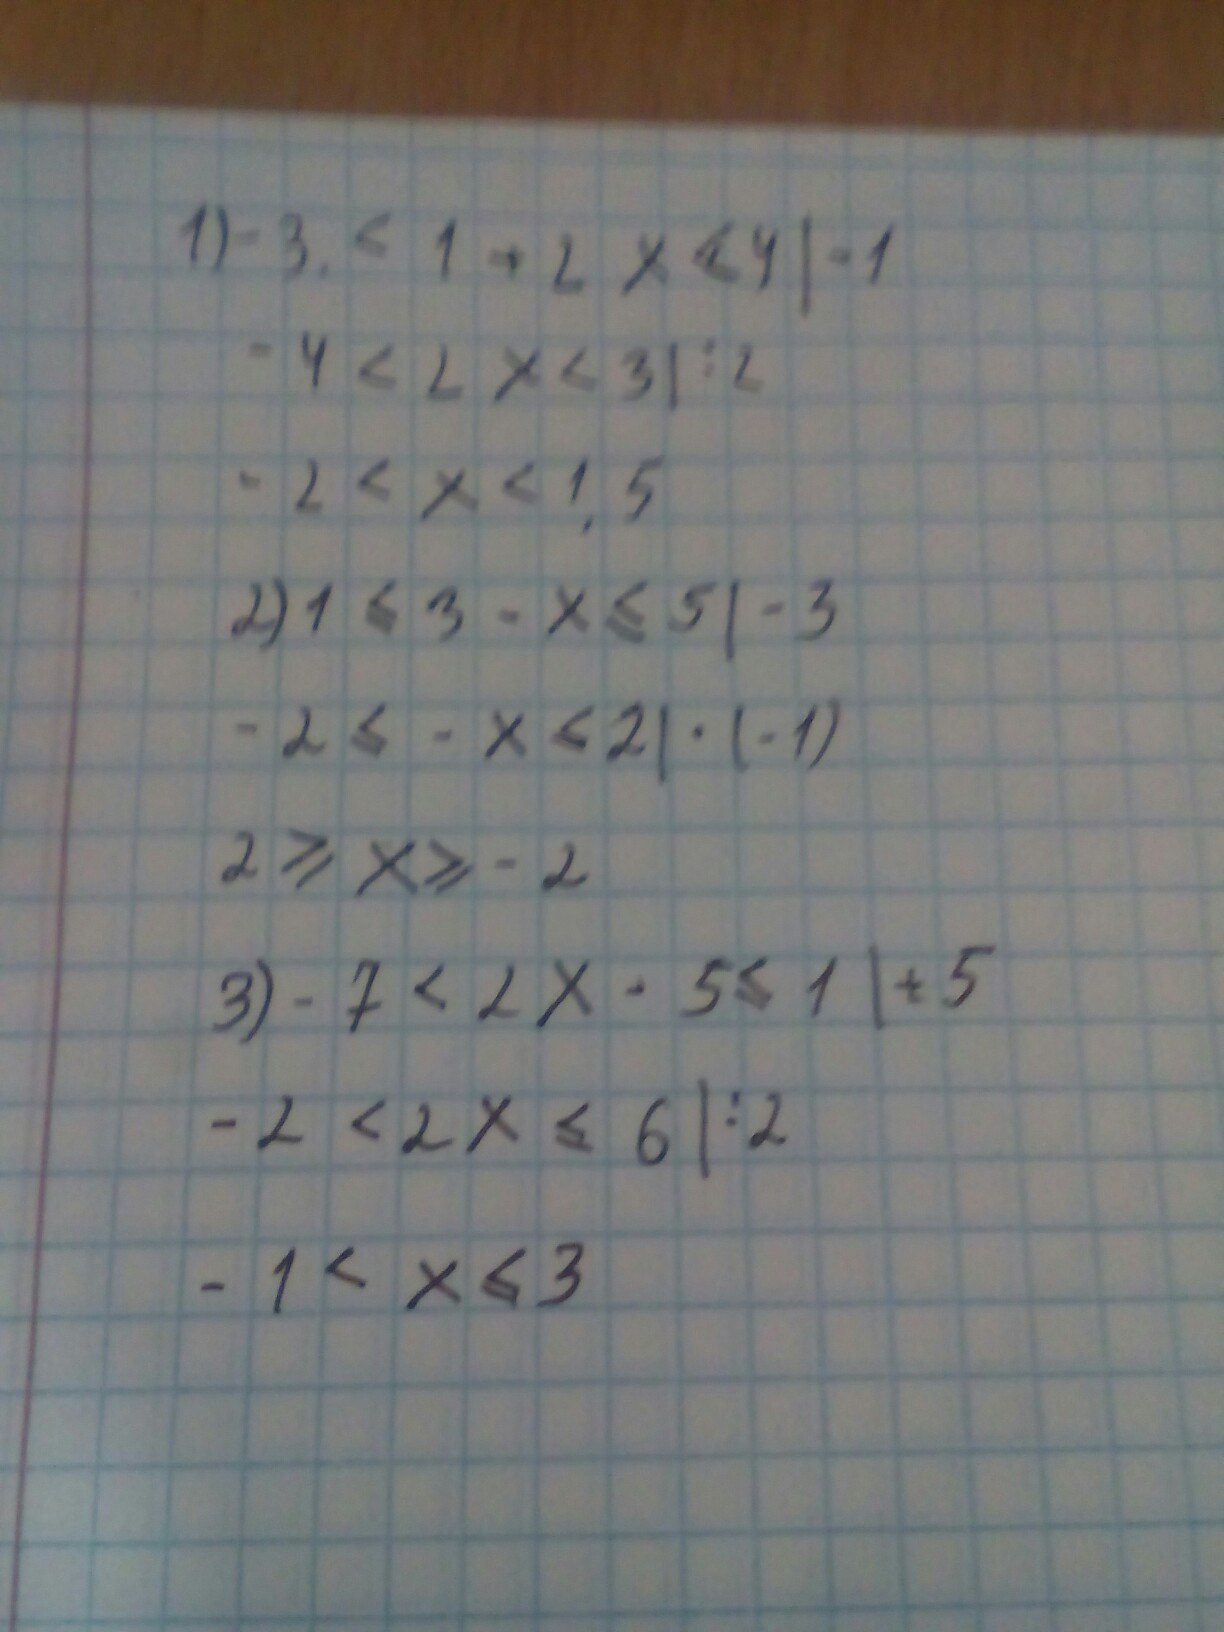 1) - 3 < 1 + 2 x < 4 | - 1
- 4 < 2 x < 3 | : 2
- 2 < x < 1,5
2) 1 ⩽ 3 - x ⩽ 5 | - 3
- 2 ⩽ - x ⩽ 2 | · (-1)
2 ⩾ x ⩾ - 2
3) - 7 < 2 x - 5 ⩽ 1 | + 5
- 2 < 2 x ⩽ 6 | : 2
- 1 < x ⩽ 3